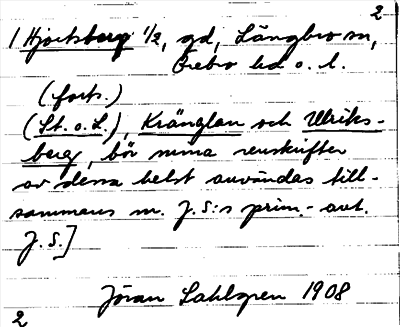 2
1 Hjortsberg 1/2, gd, Längbro sn,
Örebro hd o. l.
(forts.)
(St. o. L.), Kränglan och Ulriks-
berg, bör mina renskrifter
av dessa helst användas till-
sammans m. J. S:s prim.- avt.
J. S.]
Jöran Sahlgren 1908
2